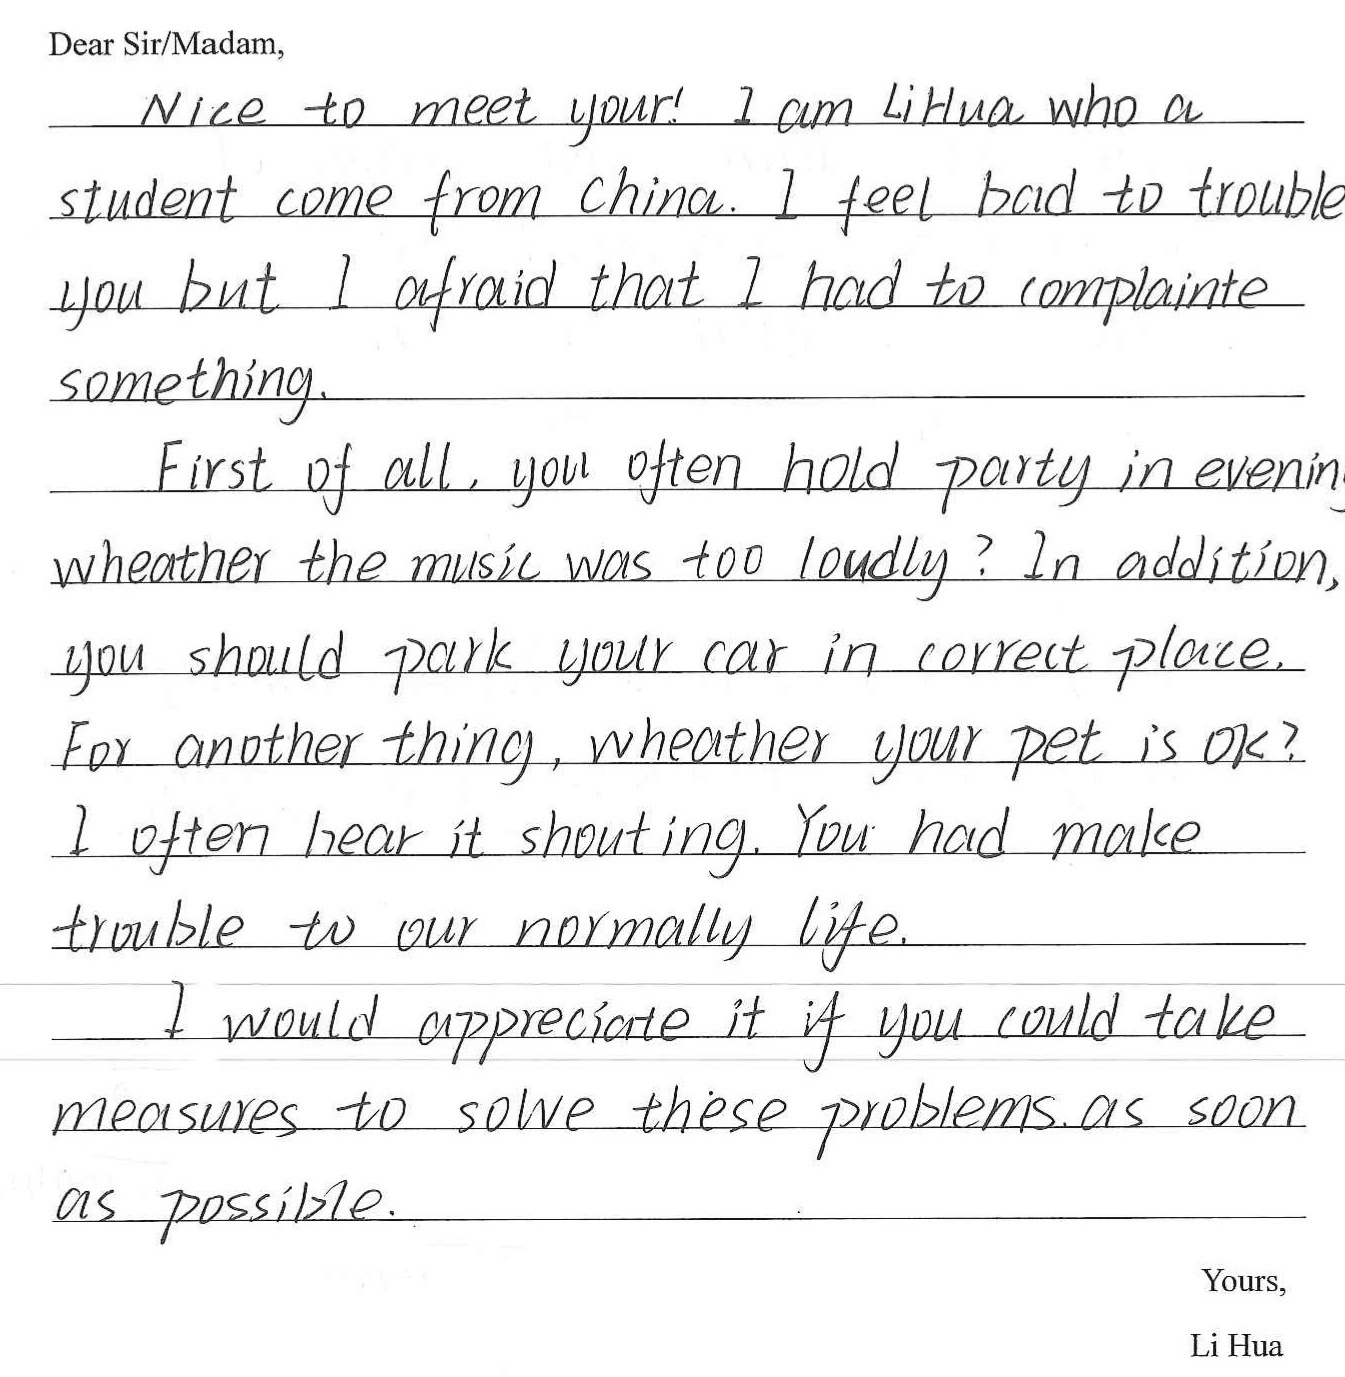 Dear Sir/Madam,
Nice to meet your! I am LiHua who a
student come from China. I feel bad to trouble
you but I afraid that I had to complainte
something.
First of all, you often hold party in evening
wheather the music was too loudly? In addition,
you should park your car in correct place.
For another thing, wheather your pet is OK?
I often hear it shouting. You had make
trouble to our normally life.
I would appreciate it if you could take
measures to solve these problems. as soon
as possible.
Yours,
Li Hua